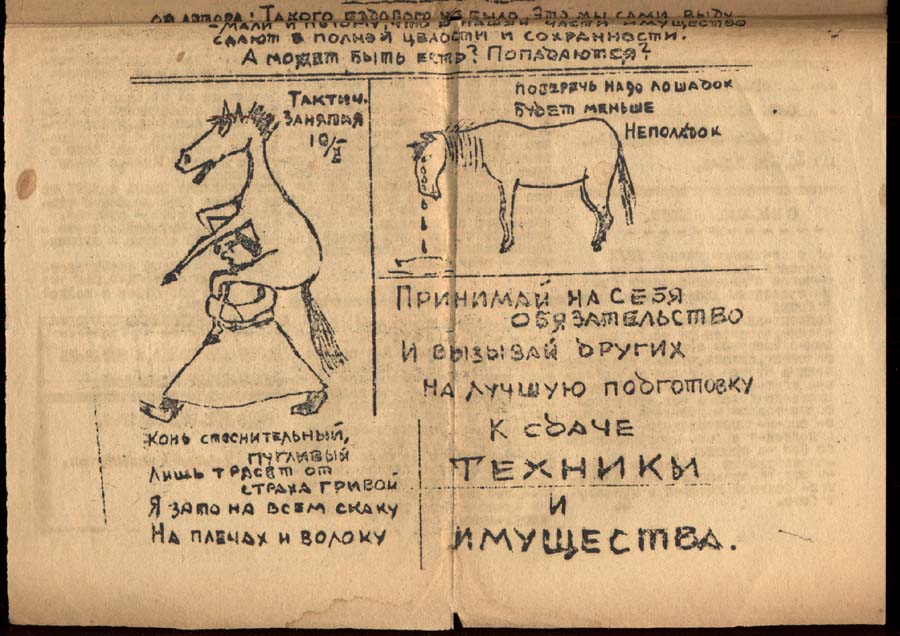 от автора: Такого ездового не было. Это мы сами выду-
мали и потому, что в нашей части имущество
сдают в полной целости и сохранности.
А может быть есть? Попадаются?
Тактич.
Занятия
10/X
Поберечь надо лошадок
Будет меньше
Неполадок
Принимай на себя
обязательство
И вызывай других
на лучшую подготовку
к сдаче
техники
и
имущества.
Конь стеснительный,
пугливый
Лишь трясет от
страха гривой
Я зато на всем скаку
На плечах и волоку